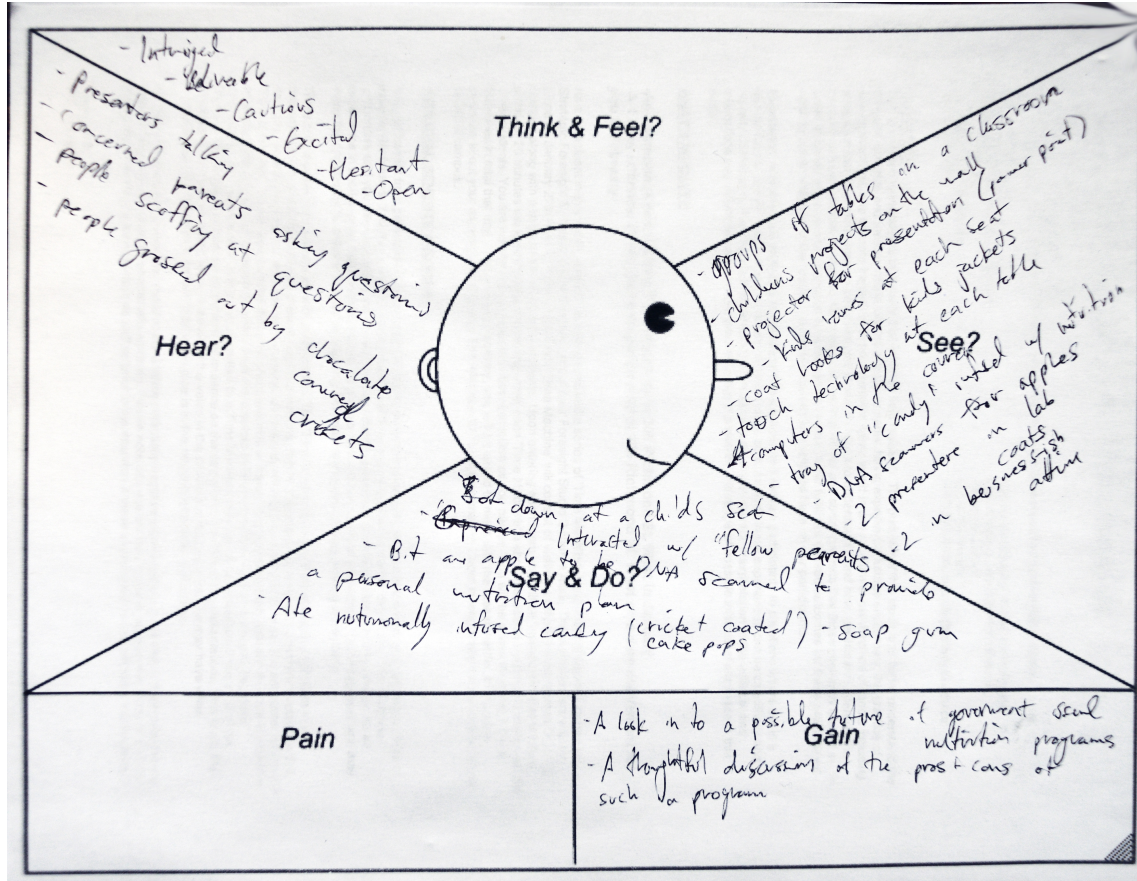 - Intruiged
- Believable
- Cautious
- Excited
- Hesitant
- Open
Think & Feel?
- Presenters talking
- concerned parents asking questions
- people scoffing at questions
- people grossed out by chocolate
covered
crickets
Hear?
- groups of tables in a classroom
- childrens projects on the wall
- projector for presentation (power point)
- kids names at each seat
- coat hooks for kids jackets
- touch technology at each table
- computers in the corner
- tray of "candy" infused w/ nutrition
- DNA scanners for apples
- 2 presenters in lab
coats
- 2 in businessish
attire
See?
- Sat down at a childs seat
- Interacted w/ "fellow parents
- Bit an apple to be DNA scanned to provide
a personal nutrition plan
Say & Do?
- Ate nutrionally infused candy (cricket coated) - soap gum
cake pops
Pain
- A look in to a possible future of goverment issued
nutrition programs
Gain
- A thoughtful discussion of the pros + cons of
such a program